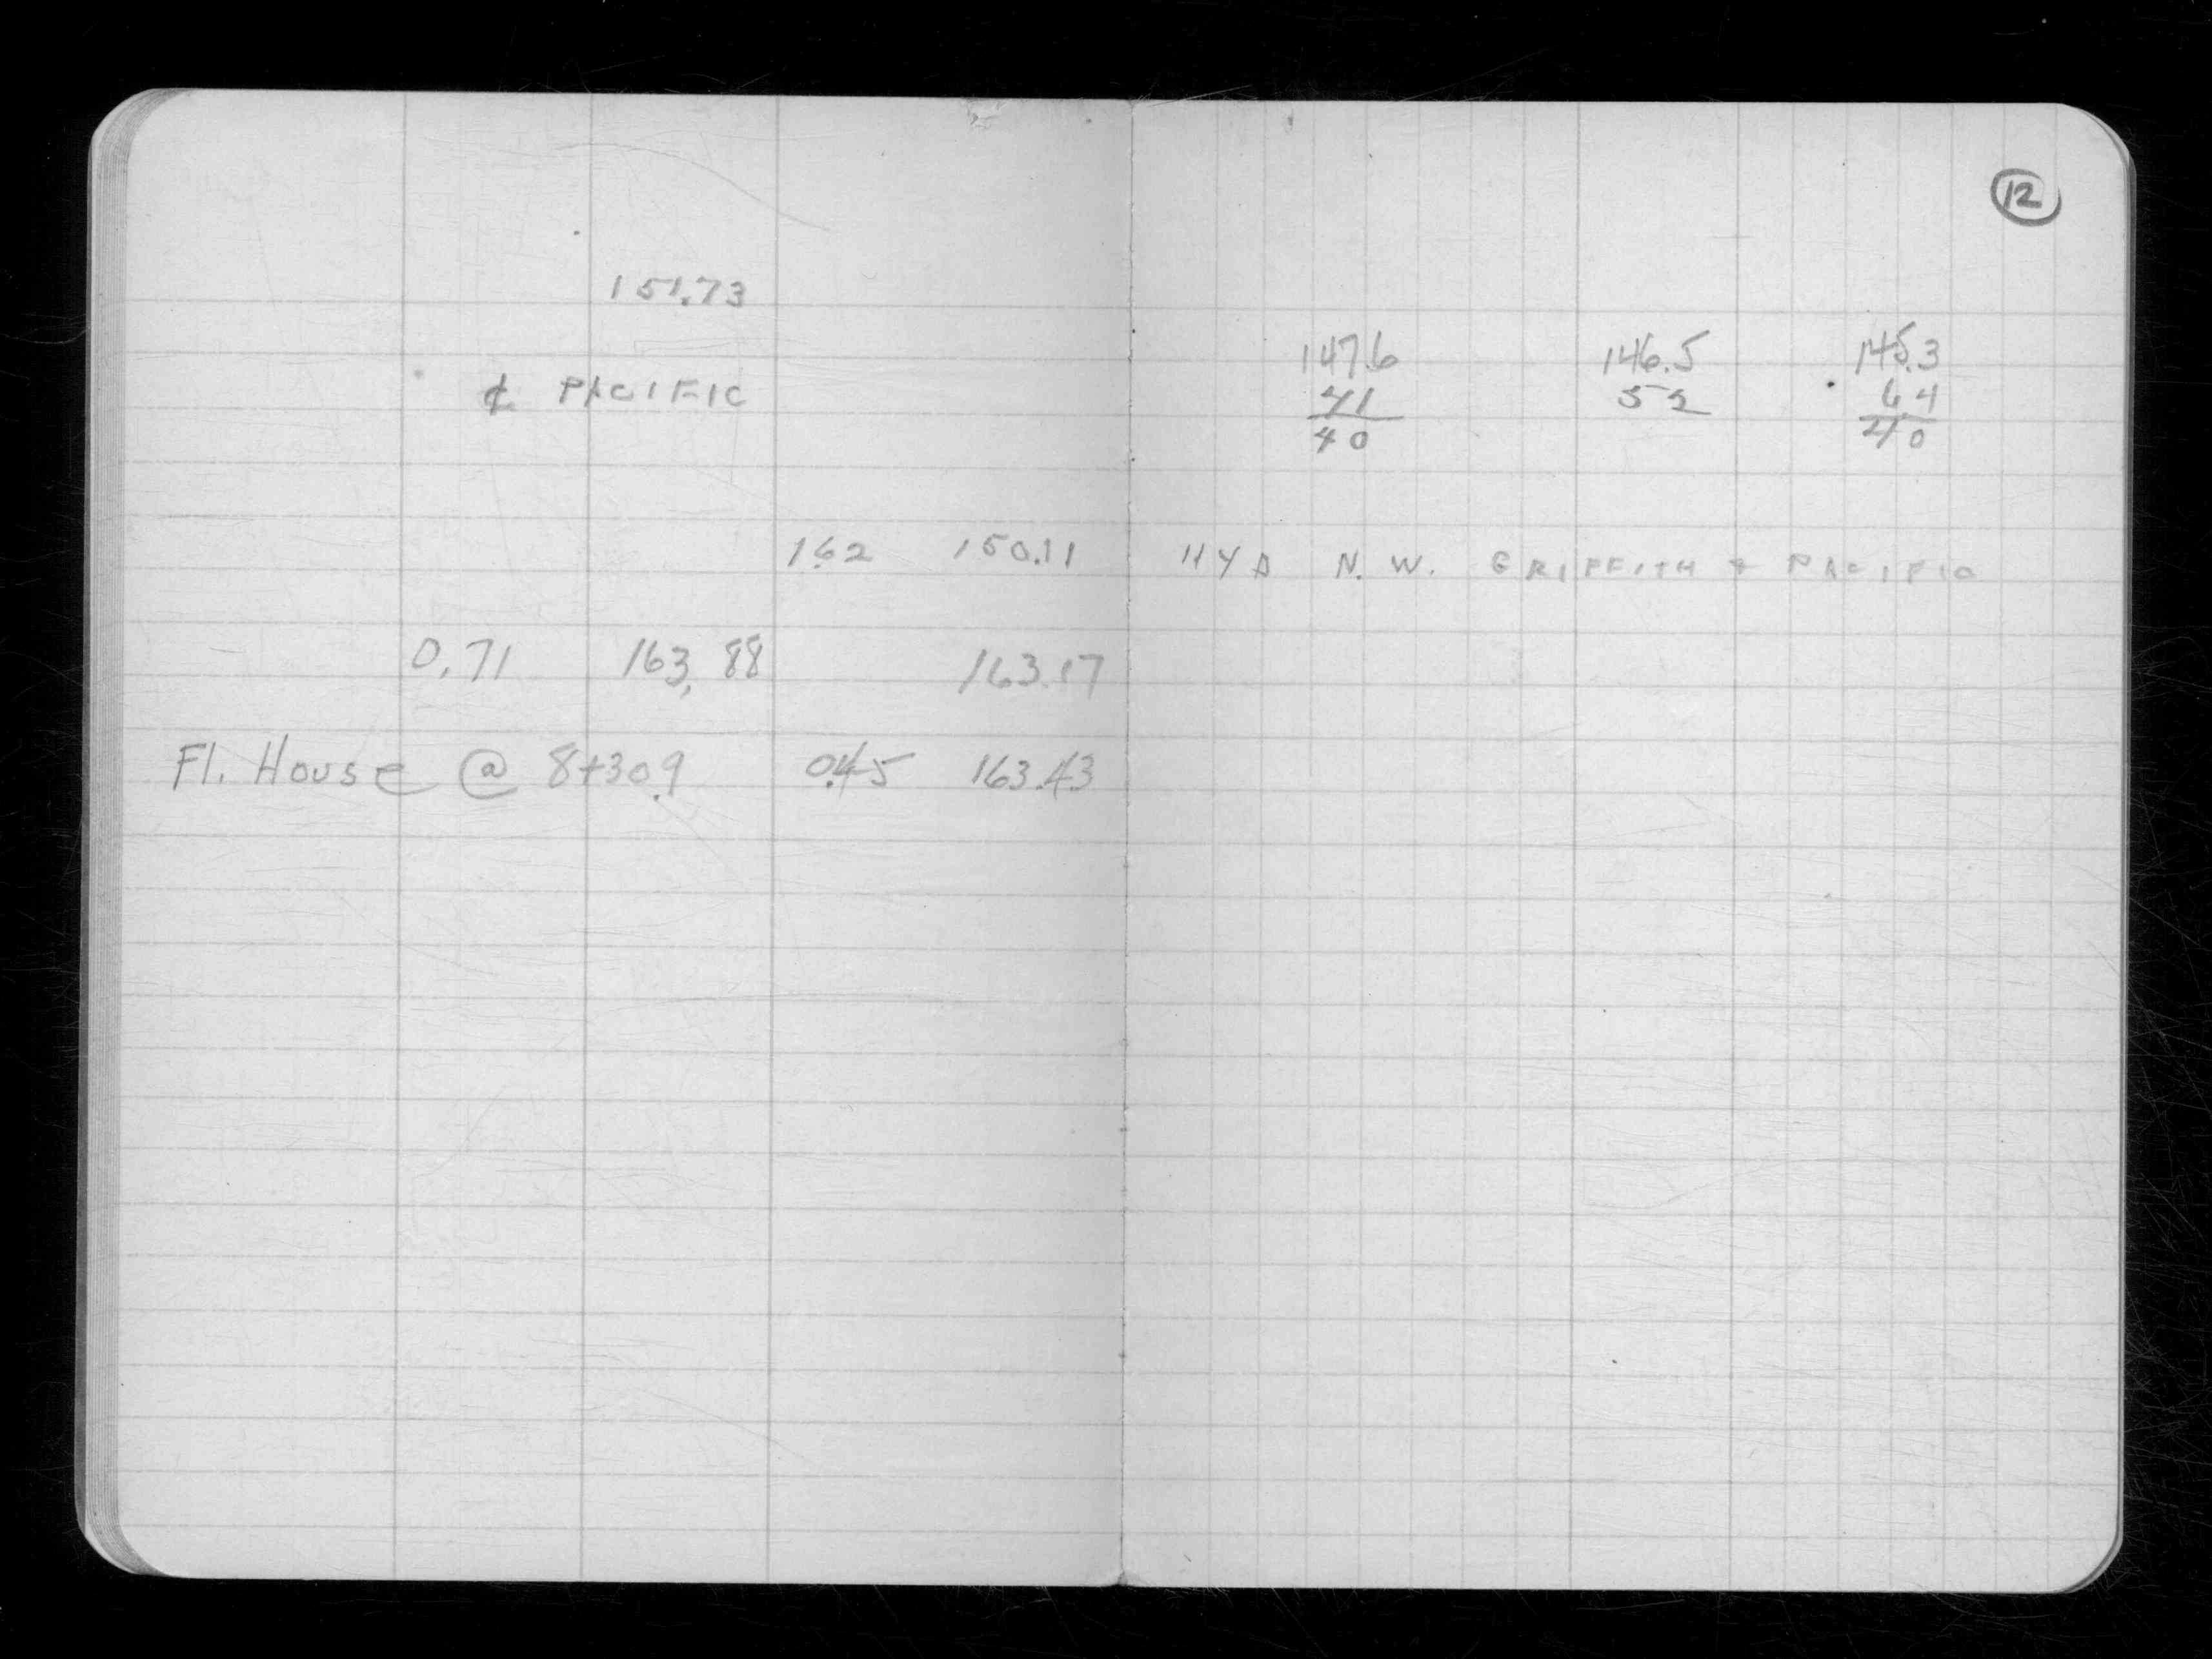 12
151.73
147.6 146.5 145.3
℄ PACIFIC 41 52 6.4
40 40
1.62 150.11 HYD N.W. GRIFFITH + PACIFIC
0.71 163.88 163.17
Fl. House @ 8+30.9 0.45 163.43